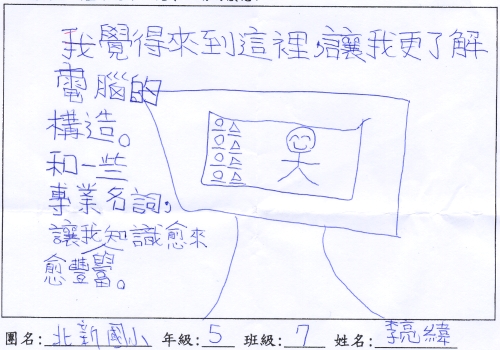 我覺得來到這裡，讓我更了解
電腦的
構造。
和一些
專業名詞，
讓我知識愈來
愈豐富。
團名：北新國小 年級：5 班級：7 姓名：李亮緯